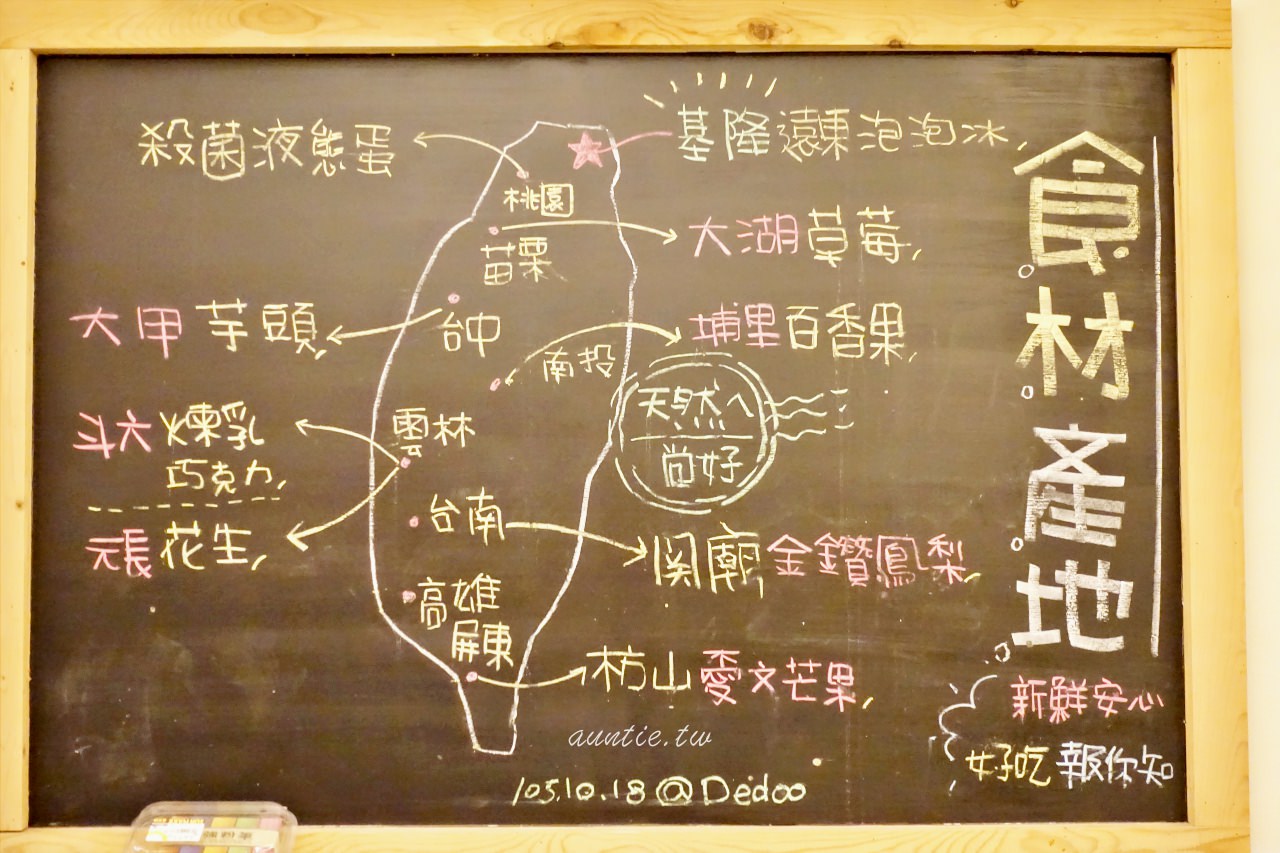 食材產地
新鮮安心
好吃報你知
基隆遠東泡泡冰,
殺菌液態蛋
桃園
大湖草莓,
苗栗
大甲芋頭,
台中
埔里百香果,
南投
天然へ
尚好
斗六煉乳
巧克力,
雲林
元長花生,
台南
関廟金鑽鳳梨,
高雄
屏東
枋山愛文芒果,
auntie.tw
105.10.18@Dedoo